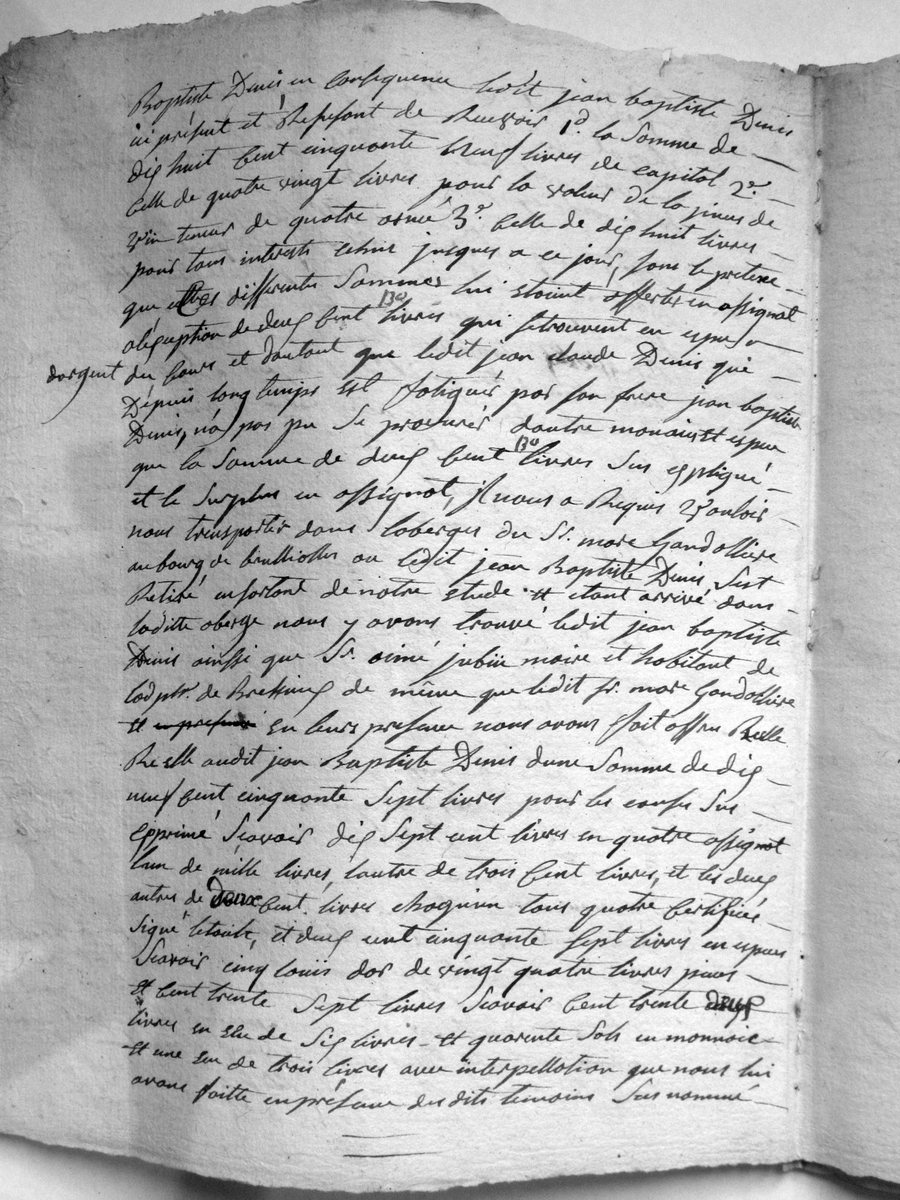 Baptiste Denis en consequence ledit jean baptiste Denis
ici présent et Refusant de Recevoir 1º la Somme de
dix huit Cent cinquante neuf livres de capital 2º
Celle de quatre vingt livres pour la valeur de la pieces de
vin teneur de quatre asnée 3º Celle de dix huit livres
pour tous interests echus jusques a ce jour, sous le pretexe
que les differentes Sommes lui etoient offertes en assignat
a lexception de deux Cent livres qui se trouvent en espece
dargent du Cours et dautant que ledit jean claude Denis qui
Dépuis long temps est fatigués par son frere jean baptiste
Denis, na pas pu Se procurér dautre monaist espece
que la Somme de deux Cent livres Sus expliqué
et le Surplus en assignat, il nous a Requis Vouloir
nous transporter dans loberges du Sr. marc Gandolliere
au bourg de brulliolles ou ledit jean Baptiste Denis Sest
Retiré en sortant de notre etude et etant arrivé dans
laditte oberge nous y avons trouvé ledit jean baptiste
Denis ainsi que Sr. aimé maire et habitant de
de même que ledit Sr. marc Gandolliere
et en leurs presence nous avons fait offre Reelle
Reelle audit jean Baptiste Denis dune Somme de dix
neuf Cent cinquante Sept livres pour les causes Sus
Epprimé Scavoir dix Sept cent livres en quatre assignat
lun de mille livres, lautre de trois Cent livres, et les deux
autres de Deux Cent livres chaquun tous quatre Certifiées
Signé et deux cent cinquante Sept livres en espece
Scavoir cinq louis dor de vingt quatre livres pieces
et Cent trente Sept livres Scavoir Cent trente deux
livres en ecu de Six livres et quarente Sols en monnoie
et une ecu de trois livres avec interpellation que nous lui
avons faitte en présence desdits temoins Sus nommé